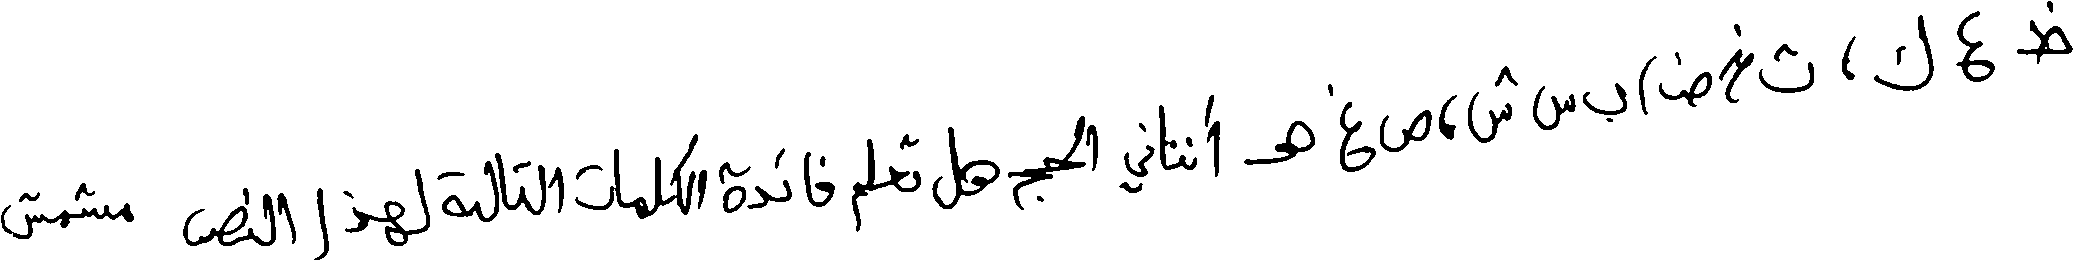 ظ ع ك ، ت خ ض ا ب س ش ، ص غ هـ أنتاني الحجج هل تعلم فائدة الكلمات التالية لهذا النص مشمش